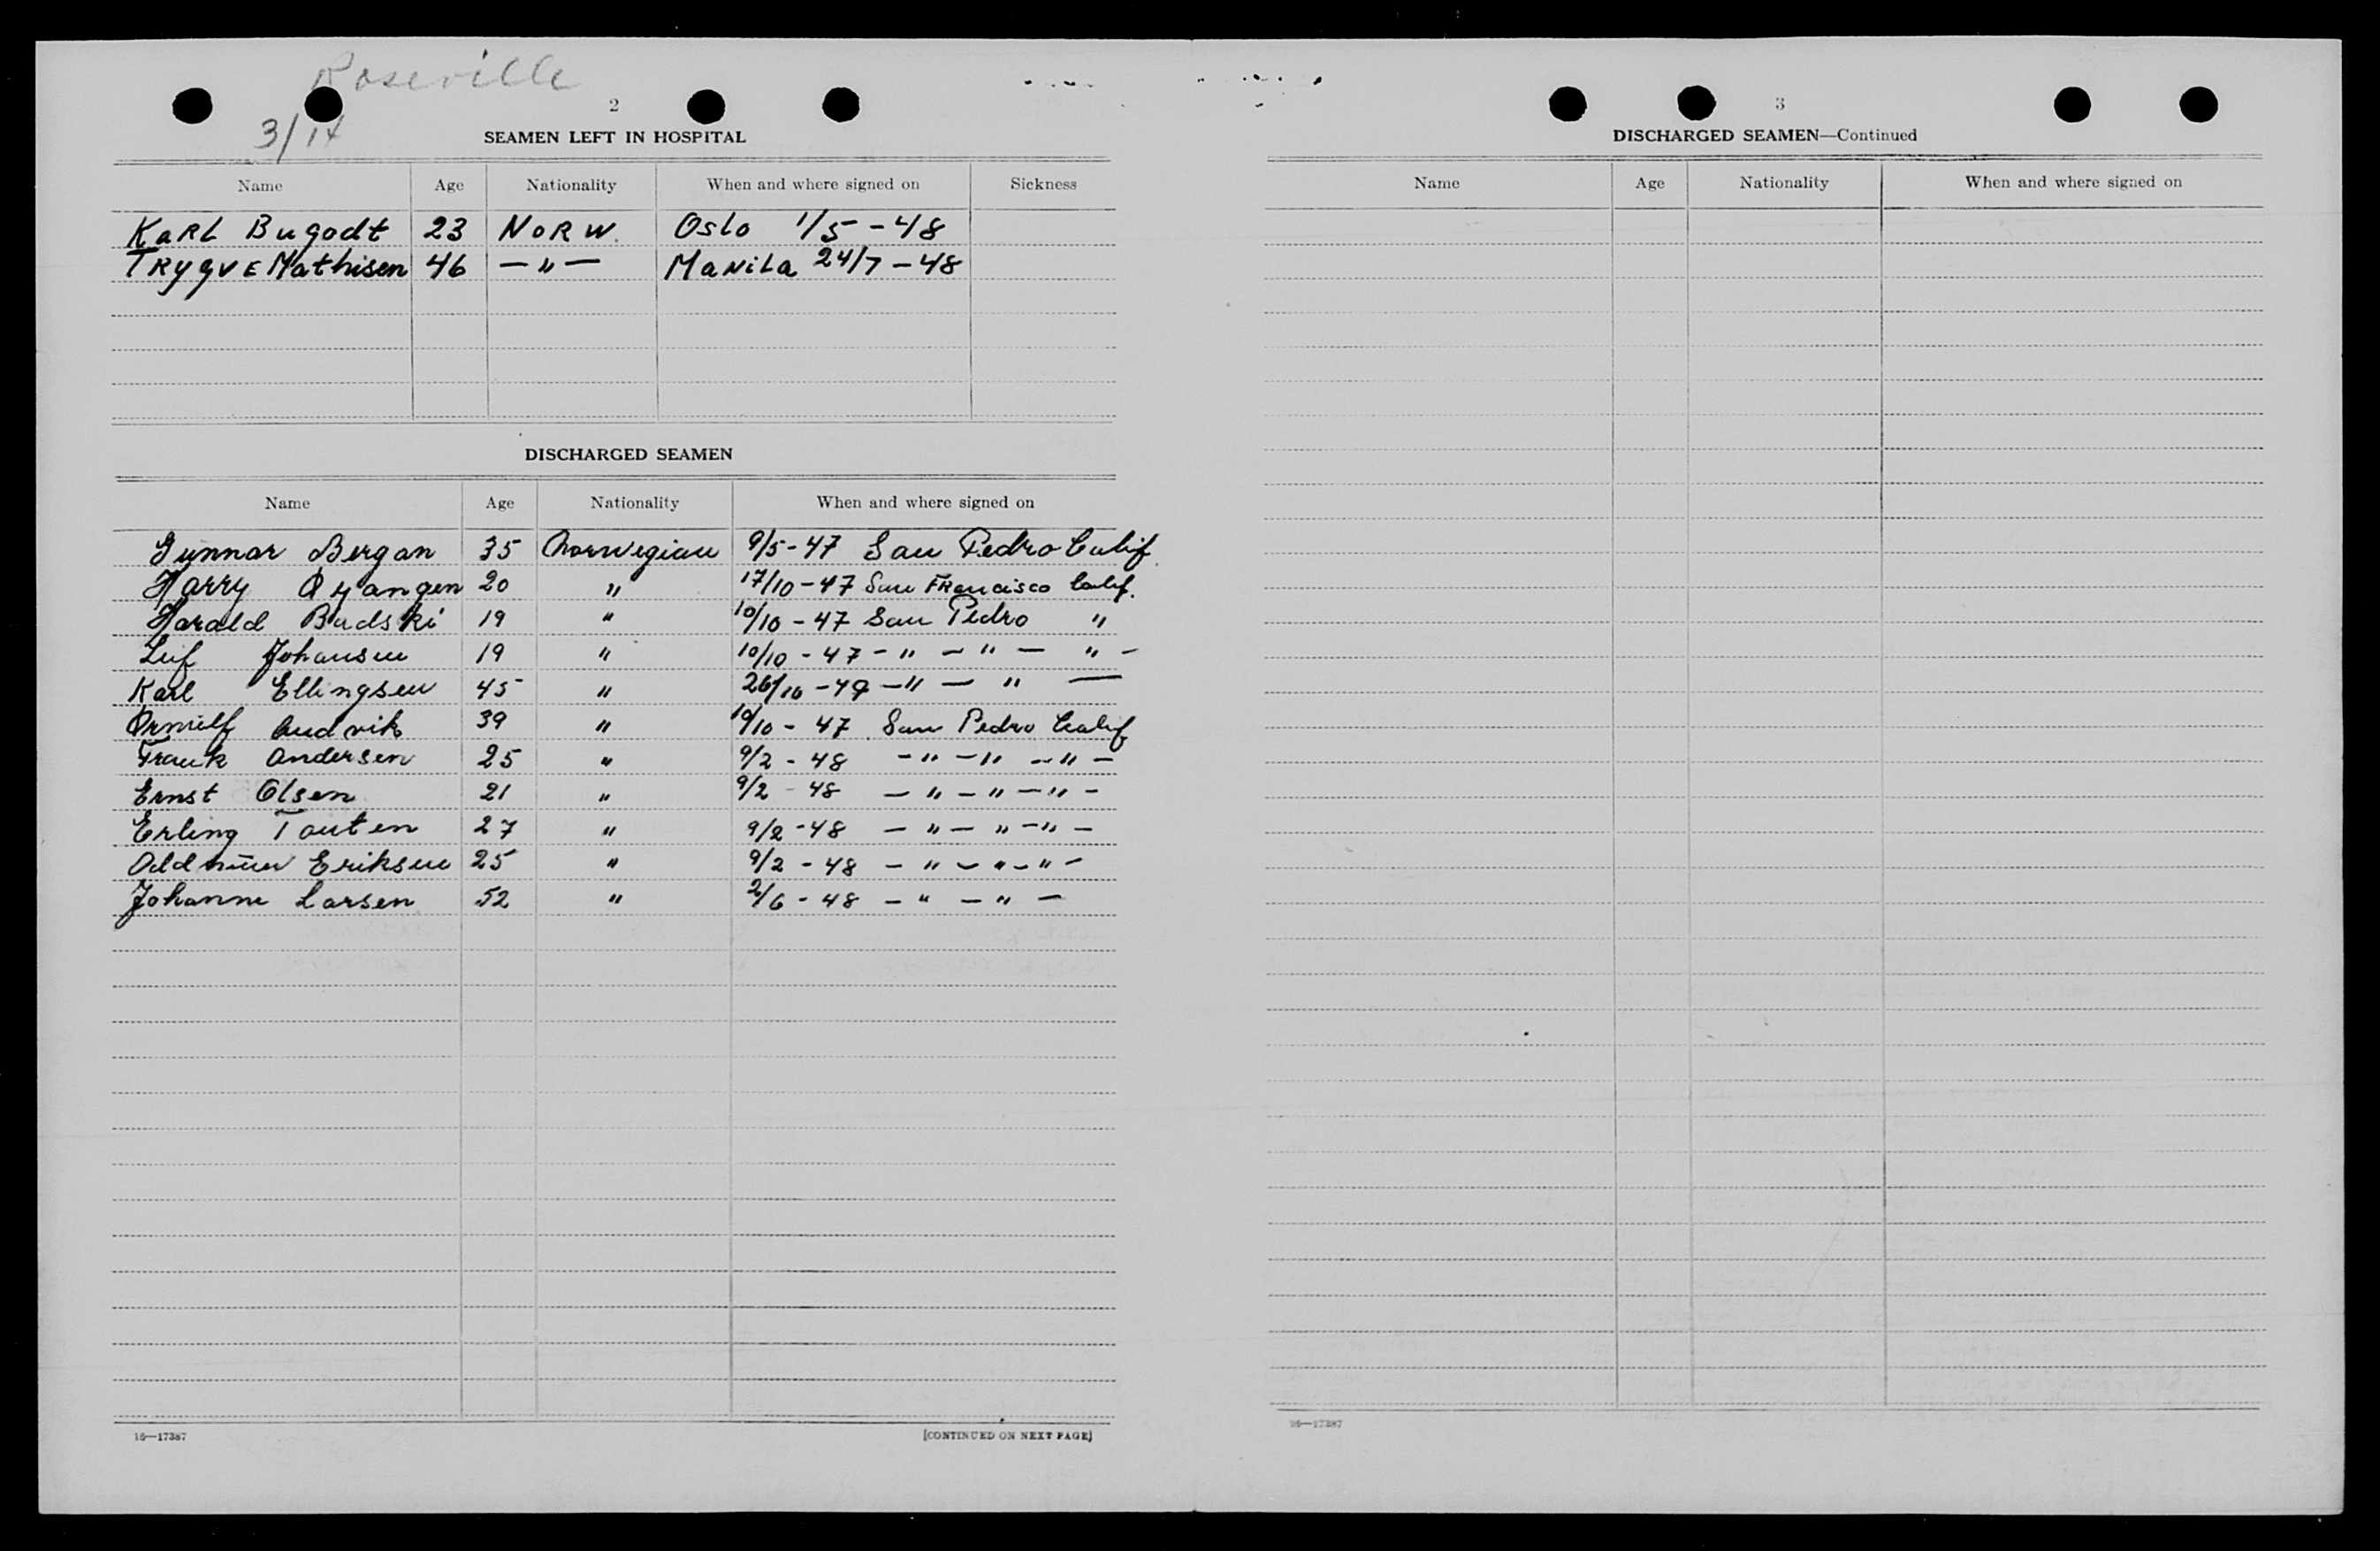 Roseville
3/14
2
SEAMEN LEFT IN HOSPITAL
Name Age Nationality When and where signed on Sickness
KaRL Bugodt 23 NoRW. Oslo 1/5 - 48
TRygvE Mathisen 46 — " — MaNiLa 24/7 - 48
DISCHARGED SEAMEN
Name Age Nationality When and where signed on
Gunnar Bergan 35 Norwegian 9/5 - 47 San Pedro Calif.
Harry Øyangen 20 " 17/10 - 47 San Francisco Calif.
Harald Budski 19 " 10/10 - 47 San Pedro "
Leif Johansen 19 " 10/10 - 47 - " - " - " -
Karl Ellingsen 45 " 26/10 - 47 - " - " -
Ørnulf Audvik 39 " 10/10 - 47 San Pedro Calif
Frank Andersen 25 " 9/2 - 48 - " - " - " -
Ernst Olsen 21 " 9/2 - 48 - " - " - " -
Erling Tauten 27 " 9/2 - 48 - " - " - " -
Oddmun Eriksen 25 " 9/2 - 48 - " - " - " -
Johanne Larsen 52 " 2/6 - 48 - " - " -
16—17387 [CONTINUED ON NEXT PAGE]
3
DISCHARGED SEAMEN—Continued
Name Age Nationality When and where signed on
16—17387